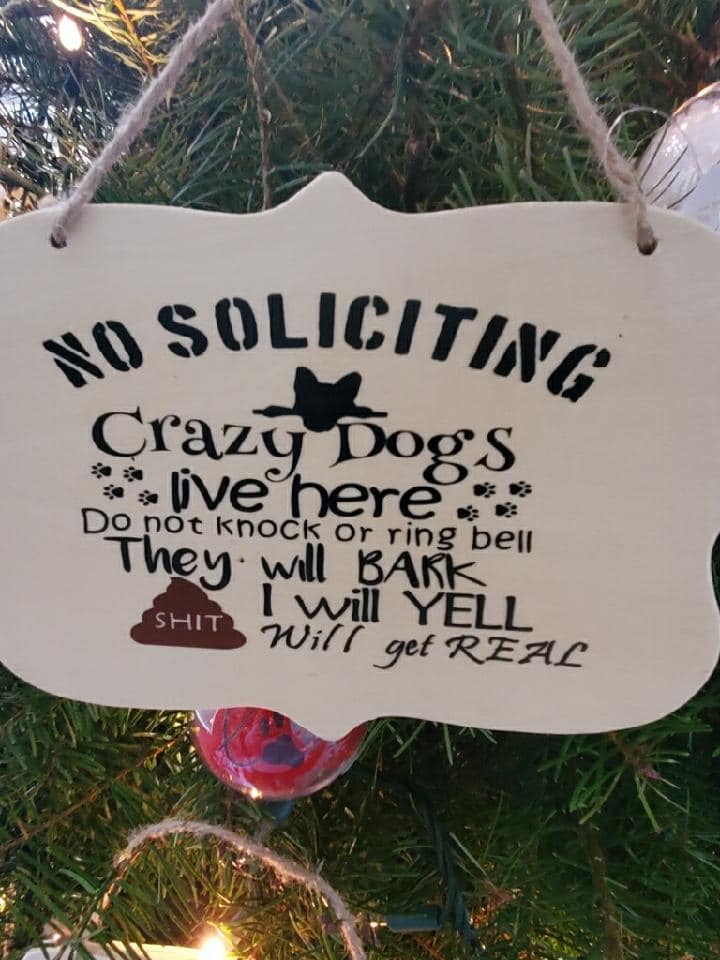 NO SOLICITING
Crazy Dogs
live here
Do not knock or ring bell
They will BARK
I will YELL
SHIT Will get REAL